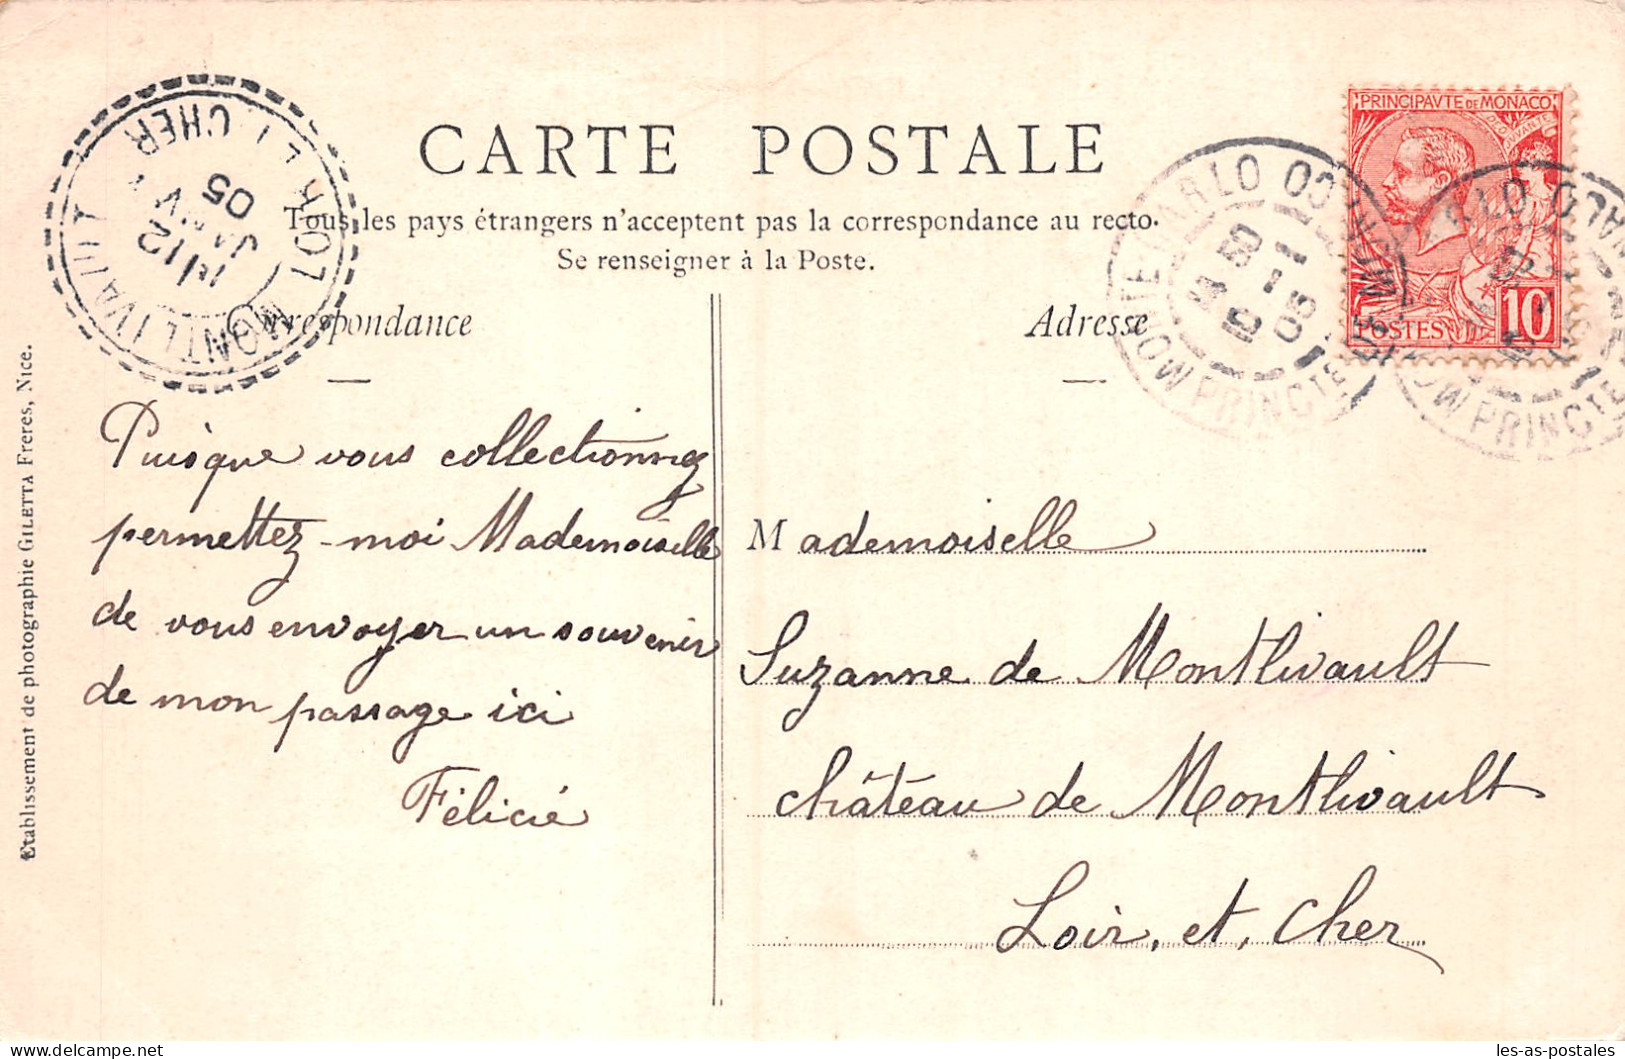 CARTE POSTALE
Tous les pays étrangers n'acceptent pas la correspondance au recto.
Se renseigner à la Poste.
Correspondance
Adresse
Puisque vous collectionnez
permettez-moi Mademoiselle
de vous envoyer un souvenir
de mon passage ici
Félicie
Mademoiselle
Suzanne de Montlivault
château de Montlivault
Loir, et, Cher
Etablissement de photographie GILETTA Freres, Nice.
PRINCIPAVTE DE MONACO
DEO JUVANTE
POSTES
10
MONTLIVAULT
LOIR-ET-CHER
12
JANV
05
MONTE CARLO
PRINCTE DE MONACO
5 -1
05
les-as-postales